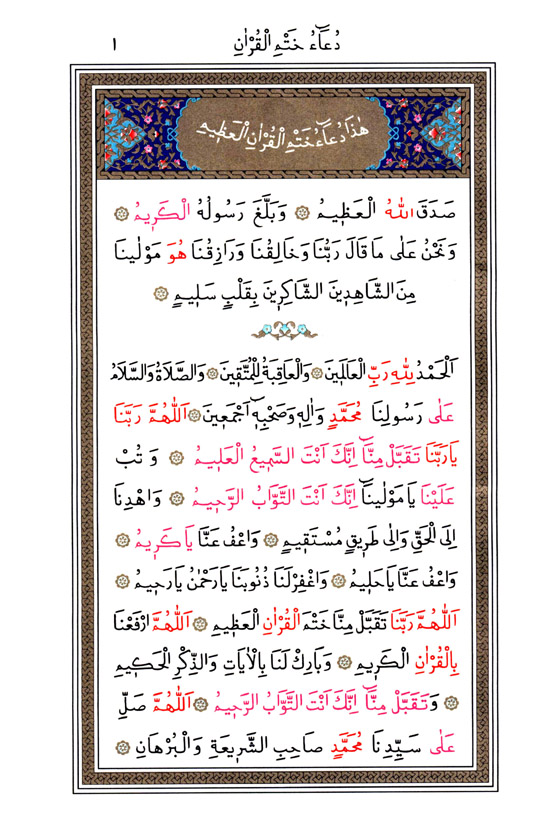 دُعَاۤءُ خَتْمِ الْقُرْاٰنِ
١
هٰذَا دُعَاۤءُ خَتْمِ الْقُرْاٰنِ الْعَظٖيمِ
صَدَقَ اللّٰهُ الْعَظٖيمُ ۞ وَبَلَّغَ رَسُولُهُ الْكَرٖيمُ ۞
وَنَحْنُ عَلٰى مَا قَالَ رَبُّنَا وَخَالِقُنَا وَرَازِقُنَا هُوَ مَوْلٰينَا
مِنَ الشَّاهِدٖينَ الشَّاكِرٖينَ بِقَلْبٍ سَلٖيمٍ ۞
اَلْحَمْدُ لِلّٰهِ رَبِّ الْعَالَمٖينَ ۞ وَالْعَاقِبَةُ لِلْمُتَّقٖينَ ۞ وَالصَّلَاةُ وَالسَّلَامُ
عَلٰى رَسُولِنَا مُحَمَّدٍ وَاٰلِهٖ وَصَحْبِهٖۤ اَجْمَعٖينَ ۞ اَللّٰهُمَّ رَبَّنَا
يَا رَبَّنَا تَقَبَّلْ مِنَّاۤ اِنَّكَ اَنْتَ السَّمٖيعُ الْعَلٖيمُ ۞ وَ تُبْ
عَلَيْنَا يَا مَوْلٰينَاۤ اِنَّكَ اَنْتَ التَّوَّابُ الرَّحٖيمُ ۞ وَاهْدِنَا
اِلَى الْحَقِّ وَاِلٰى طَرٖيقٍ مُسْتَقٖيمٍ ۞ وَاعْفُ عَنَّا يَا كَرٖيمُ ۞
وَاعْفُ عَنَّا يَا حَلٖيمُ ۞ وَاغْفِرْلَنَا ذُنُوبَنَا يَا رَحْمٰنُ يَا رَحٖيمُ ۞
اَللّٰهُمَّ رَبَّنَا تَقَبَّلْ مِنَّا خَتْمَ الْقُرْاٰنِ الْعَظٖيمِ ۞ اَللّٰهُمَّ ارْفَعْنَا
بِالْقُرْاٰنِ الْكَرٖيمِ ۞ وَبَارِكْ لَنَا بِالْاٰيَاتِ وَالذِّكْرِ الْحَكٖيمِ
۞ وَتَقَبَّلْ مِنَّاۤ اِنَّكَ اَنْتَ التَّوَّابُ الرَّحٖيمُ ۞ اَللّٰهُمَّ صَلِّ
عَلٰى سَيِّدِنَا مُحَمَّدٍ صَاحِبِ الشَّرٖيعَةِ وَالْبُرْهَانِ ۞